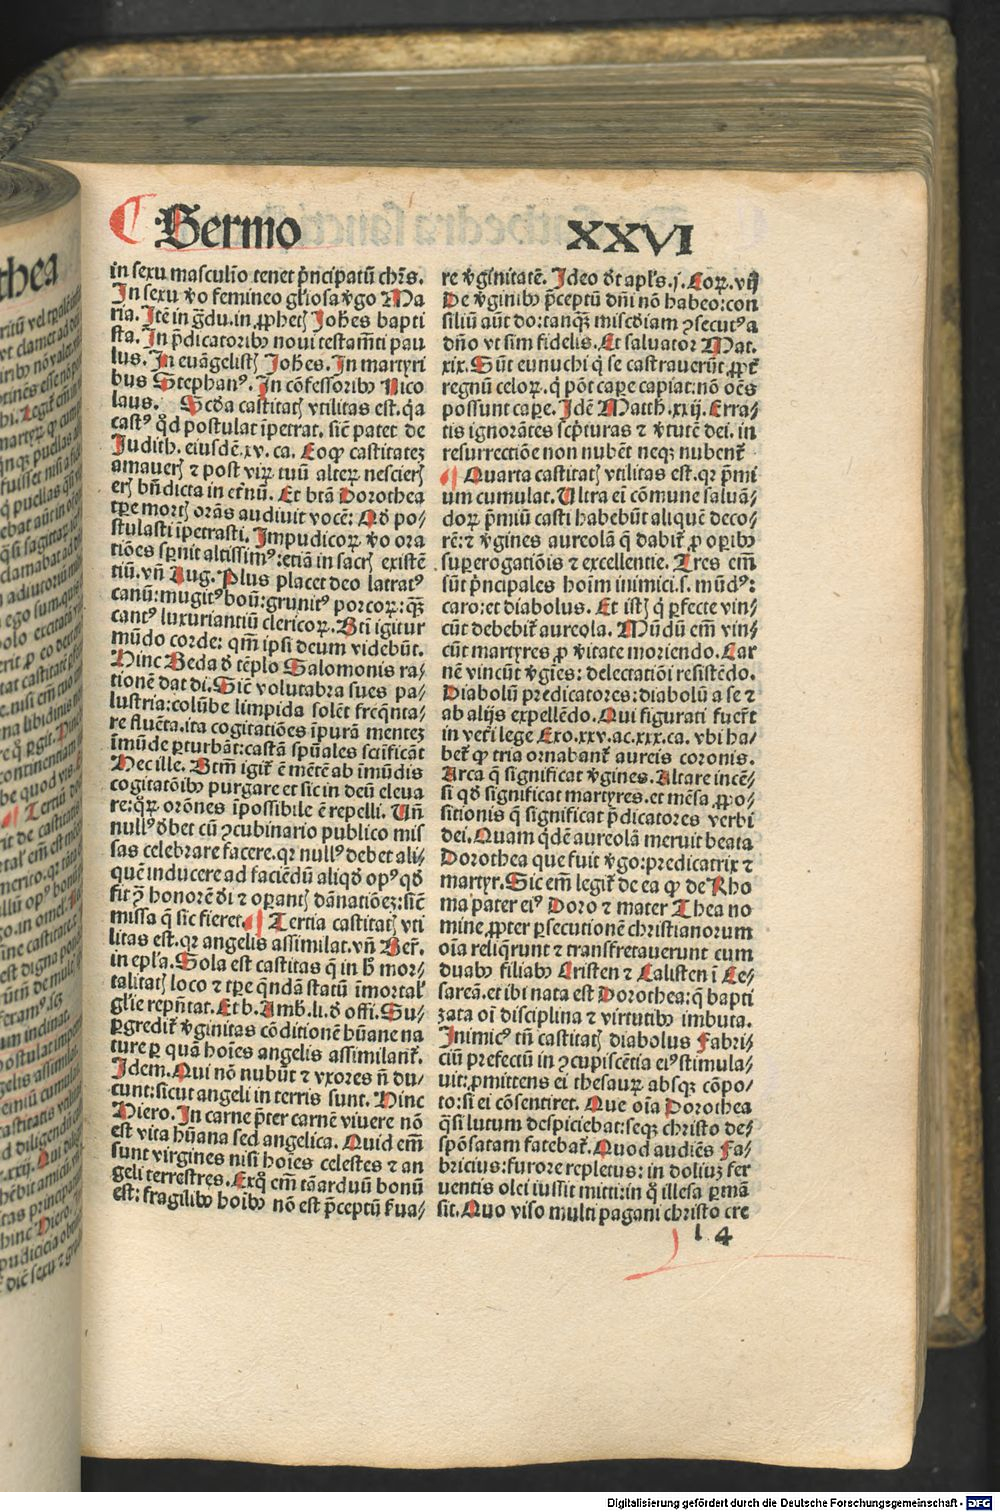 Sermo XXVI
in sexu masculīo tenet p̄ncipatū chr̄s.
In sexu v̄o femineo gl̄iosa v̄go Ma
ria. Itē in ḡdu. in ꝓphetꝭ Joh̄es bapti
sta. In p̄dicatoribꝰ noui testam̄ti pau
lus. In euāgelistꝭ Joh̄es. In martyri
bus Stephanꝰ. In cōfessoribꝰ Nico
laus. Scd̄a castitatꝭ vtilitas est. q̄a
castꝰ qd̄ postulat īpetrat. sic̄ patet de
Judith. eiusdē .xv. ca. Eoqꝫ castitateꝫ
amauerꝭ ⁊ post virꝝ tuū alterꝝ nescierꝭ
erꝭ bn̄dicta in et̄nū. Et btā Dorothea
tꝑe mortꝭ orās audiuit vocē: Qd̄ po⸗
stulasti īpetrasti. Impudicoꝝ v̄o ora
tiōes sꝑnit altissimꝰ: etiā in sacrꝭ existē
tiū. vn̄ Aug. Plus placet deo latratꝰ
canū: mugitꝰ boū: grunitꝰ porcoꝝ: qꝫ
cantꝰ luxuriantiū clericoꝝ. Bt̄i igitur
mūdo corde: qm̄ ipsi deum videbūt.
Hinc Beda d̄ tēplo Salomonis ra⸗
tionē dat di. Sic̄ volutabra sues pa⸗
lustria: colūbe limpida solēt freq̄nta⸗
re fluēta. ita cogitatiōes īpurā menteꝫ
īmūde ꝑturbāt: castā spūales scīficāt
Hec ille. Btm̄ igit̄ ē mētē ab īmūdis
cogitatōibꝰ purgare et sic in deū eleua
re: qꝝ orōnes īpossibile ē repelli. Un̄
nullꝰ d̄bet cū ꝯcubinario publico mis
sas celebrare facere. qr nullꝰ debet ali⸗
quē inducere ad faciēdū aliqd̄ opꝰ qd̄
fit ꝯ honorē d̄i ⁊ oꝑantꝭ dānatiōeꝫ: sic̄
missa q̄ sic fieret. ¶ Tertia castitatꝭ vti
litas est. qr angelis assimilat. vn̄ Ber̄.
in epl̄a. Sola est castitas q̄ in h̄ mor⸗
talitatꝭ loco ⁊ tꝑe qn̄dā statū īmortal̄
gl̄ie repn̄tat. Et b. Amb. li. d̄ offi. Su⸗
ꝑgredit̄ v̄ginitas cōditionē hūane na
ture ꝑ quā hoīes angelis assimilant̄.
Idem. Qui nō nubūt ⁊ vxores n̄ du⸗
cunt: sicut angeli in terris sunt. Hinc
Hiero. In carne p̄ter carnē viuere nō
est vita hūana sed angelica. Quid em̄
sunt virgines nisi hoīes celestes ⁊ an
geli terrestres. Exq̊ em̄ tā arduū bonū
est: fragilibꝰ hoibꝰ nō est p̄ceptū ẜua⸗
re v̄ginitatē. Ideo d̄t apl̄s .j. Corꝝ. vij
De v̄ginibꝰ p̄ceptū dn̄i nō habeo: con
siliū aūt do: tanqꝫ misc̄diam ꝯsecutꝰ a
dn̄o vt sim fidelis. Et saluator Mat.
xix. Sūt eunuchi q̇ se castrauerūt ꝓpt̄
regnū celoꝝ. q̇ pōt caꝑe capiat: nō oēs
possunt caꝑe. Idē Matth. xxij. Erra⸗
tis ignorātes scp̄turas ⁊ v̄tutē dei. in
resurrectiōe non nubēt neqꝫ nubent̄
¶ Quarta castitatꝭ vtilitas est. qr p̄mi
um cumulat. Ultra ei cōmune saluā⸗
doꝝ p̄miū casti habebūt aliquē deco⸗
rē: ⁊ v̄gines aureolā q̄ dabit̄ ꝓ oꝑibꝰ
suꝑerogatiōis ⁊ excellentie. Tres em̄
sūt p̄ncipales hoīm inimici. s. mūdꝰ:
caro: et diabolus. Et istꝭ q̇ ꝑfecte vin⸗
cūt debebit̄ aureola. Mūdū em̄ vin⸗
cūt martyres ꝓ v̄itate moriendo. Car
nē vincūt v̄gīes: delectatiōi resistēdo.
Diabolū predicatores: diabolū a se ⁊
ab alijs expellēdo. Qui figurati fuer̄t
in vet̄i lege Exo. xxv. ac. xxx. ca. vbi ha⸗
bet̄ ꝙ tria ornabant̄ aureis coronis.
Arca q̄ significat v̄gines. Altare incē⸗
si qd̄ significat martyres. et mēsa ꝓpo⸗
sitionis q̄ significat p̄dicatores verbi
dei. Quam q̇dē aureolā meruit beata
Dorothea que fuit v̄go: predicatrix ⁊
martyr. Sic em̄ legit̄ de ea ꝙ de Rho
ma pater eiꝰ Doro ⁊ mater Thea no
mine, ꝓpter ꝑsecutionē christianorum
oīa reliq̄runt ⁊ transfretauerunt cum
duabꝰ filiabꝰ Cristen ⁊ Calisten ī Ce⸗
sareā. et ibi nata est Dorothea: q̄ bapti
zata oī disciplina ⁊ virtutibꝰ imbuta.
Inimicꝰ tn̄ castitatꝭ diabolus Fabri⸗
ciū prefectū in ꝯcupiscētia eiꝰ stimula⸗
uit: ꝓmittens ei thesauꝝ absqꝫ cōpo⸗
to: si ei cōsentiret. Que oīa Dorothea
q̄si lutum despiciebat: seqꝫ christo de⸗
spōsatam fatebat̄. Quod audiēs Fa⸗
bricius: furore repletus: in doliuꝫ fer
uentis olei iussit mitti: in q̊ illesa ꝑmā
sit. Quo viso multi pagani christo cre
l 4
Digitalisierung gefördert durch die Deutsche Forschungsgemeinschaft - DFG